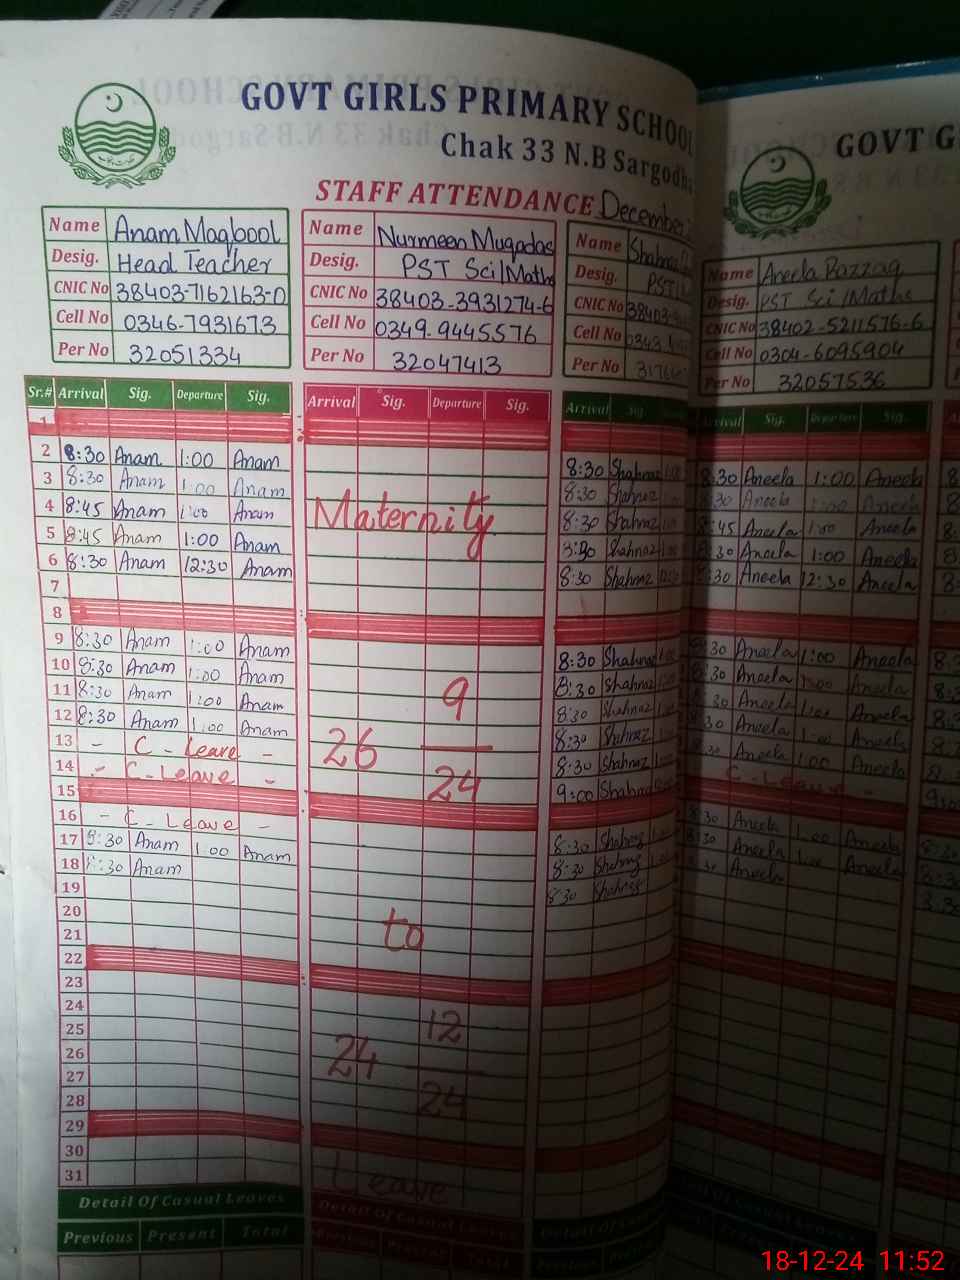 GOVT GIRLS PRIMARY SCHOOL
Chak 33 N.B Sargodha
STAFF ATTENDANCE December
Name Anam Maqbool
Desig. Head Teacher
CNIC No 38403-7162163-0
Cell No 0346-7931673
Per No 32051334
Name Nurmeen Muqadas
Desig. PST Sci/Maths
CNIC No 38403-3931274-6
Cell No 0349-9445576
Per No 32047413
Name Shahnaz
Desig. PST
CNIC No 38403
Cell No 0343
Per No
Sr.# Arrival Sig. Departure Sig.
1
2 8:30 Anam 1:00 Anam
3 8:30 Anam 1:00 Anam
4 8:45 Anam 1:00 Anam
5 8:45 Anam 1:00 Anam
6 8:30 Anam 12:30 Anam
7
8
9 8:30 Anam 1:00 Anam
10 8:30 Anam 1:00 Anam
11 8:30 Anam 1:00 Anam
12 8:30 Anam 1:00 Anam
13 - C - Leave -
14 - C - Leave -
15
16 - C - Leave -
17 8:30 Anam 1:00 Anam
18 8:30 Anam
19
20
21
22
23
24
25
26
27
28
29
30
31
Detail Of Casual Leaves
Previous Present Total
Arrival Sig. Departure Sig.
Maternity
26 9/24
to
24 12/24
Leave
Detail Of Casual Leaves
Previous Present Total
Arrival Sig
8:30 Shahnaz 1:00
8:30 Shahnaz
8:30 Shahnaz
8:30 Shahnaz
8:30 Shahnaz
8:30 Shahnaz
8:30 Shahnaz
8:30 Shahnaz
8:30 Shahnaz
8:30 Shahnaz
9:00 Shahnaz
8:30 Shahnaz
8:30 Shahnaz
8:30 Shahnaz
GOVT G
Name Aneela Razzaq
Desig. PST Sci/Maths
CNIC No 38402-5211576-6
Cell No 0304-6095904
Per No 32057536
Arrival Sig. Departure Sig.
8:30 Aneela 1:00 Aneela
8:30 Aneela 1:00 Aneela
8:45 Aneela 1:00 Aneela
8:30 Aneela 1:00 Aneela
8:30 Aneela 12:30 Aneela
8:30 Aneela 1:00 Aneela
8:30 Aneela 1:00 Aneela
8:30 Aneela 1:00 Aneela
8:30 Aneela 1:00 Aneela
8:30 Aneela 1:00 Aneela
C - Leave -
8:30 Aneela 1:00 Aneela
8:30 Aneela 1:00 Aneela
8:30 Aneela
18-12-24 11:52